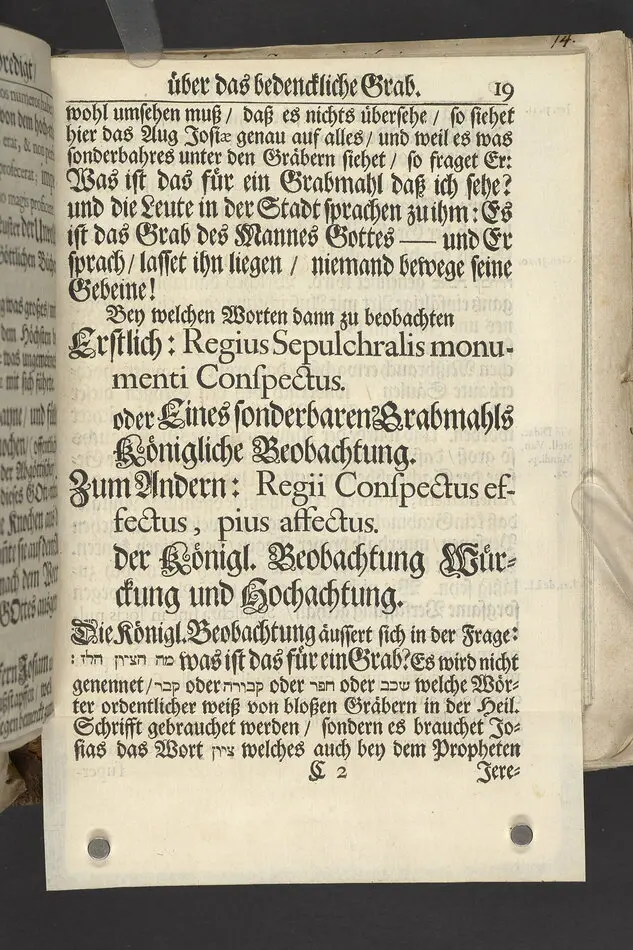 14.
über das bedenckliche Grab. 19
wohl umsehen muß / daß es nichts übersehe / so siehet
hier das Aug Josiæ genau auf alles / und weil es was
sonderbahres unter den Gräbern siehet / so fraget Er:
Was ist das für ein Grabmahl daß ich sehe?
und die Leute in der Stadt sprachen zu ihm: Es
ist das Grab des Mannes Gottes — und Er
sprach / lasset ihn liegen / niemand bewege seine
Gebeine!
Bey welchen Worten dann zu beobachten
Erstlich: Regius Sepulchralis monu-
menti Conſpectus.
oder Eines sonderbaren Grabmahls
Königliche Beobachtung.
Zum Andern: Regii Conſpectus ef-
fectus, pius affectus.
der Königl. Beobachtung Wür-
ckung und Hochachtung.
Die Königl. Beobachtung äussert sich in der Frage:
מה הציון הלז : was ist das für ein Grab? Es wird nicht
genennet / קבר oder קבורה oder חפר oder שכב welche Wör-
ter ordentlicher weiß von bloßen Gräbern in der Heil.
Schrifft gebrauchet werden / sondern es brauchet Jo-
sias das Wort ציון welches auch bey dem Propheten
C 2 Jere-